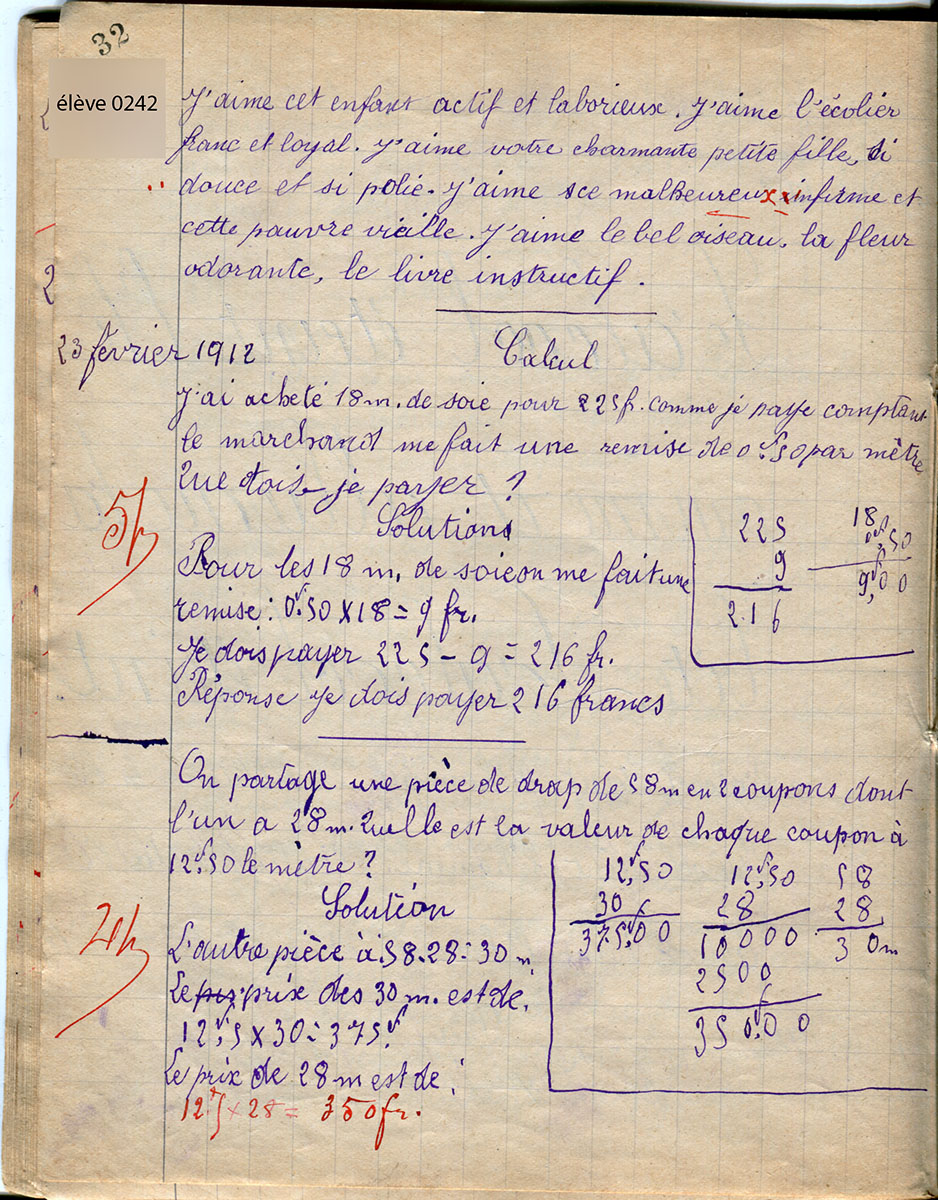 32
élève 0242
J'aime cet enfant actif et laborieux. J'aime l'écolier
franc et loyal. J'aime votre charmante petite fille, si
douce et si polie. J'aime sce malheureux infirme et
cette pauvre vieille. J'aime le bel oiseau, la fleur
odorante, le livre instructif.
2
23 février 1912
Calcul
J'ai acheté 18 m. de soie pour 225 f. comme je paye comptant
le marchand me fait une remise de 0f,50 par mètre
Que dois-je payer ?
5h
Solution
Pour les 18 m. de soie on me fait une
remise : 0f,50 x 18 = 9 fr.
Je dois payer 225 - 9 = 216 fr.
Réponse je dois payer 216 francs
225
9
216
18
0f,50
9f,00
On partage une pièce de drap de 58 m en 2 coupons dont
l'un a 28 m. Quelle est la valeur de chaque coupon à
12f,50 le mètre ?
2h
Solution
L'autre pièce à : 58 - 28 = 30 m
Le prix des 30 m. est de :
12f,5 x 30 = 375f
Le prix de 28 m est de :
12f,5 x 28 = 350 fr.
12f,50
30
375f,00
12f,50
28
10000
2500
350f,00
58
28
30m